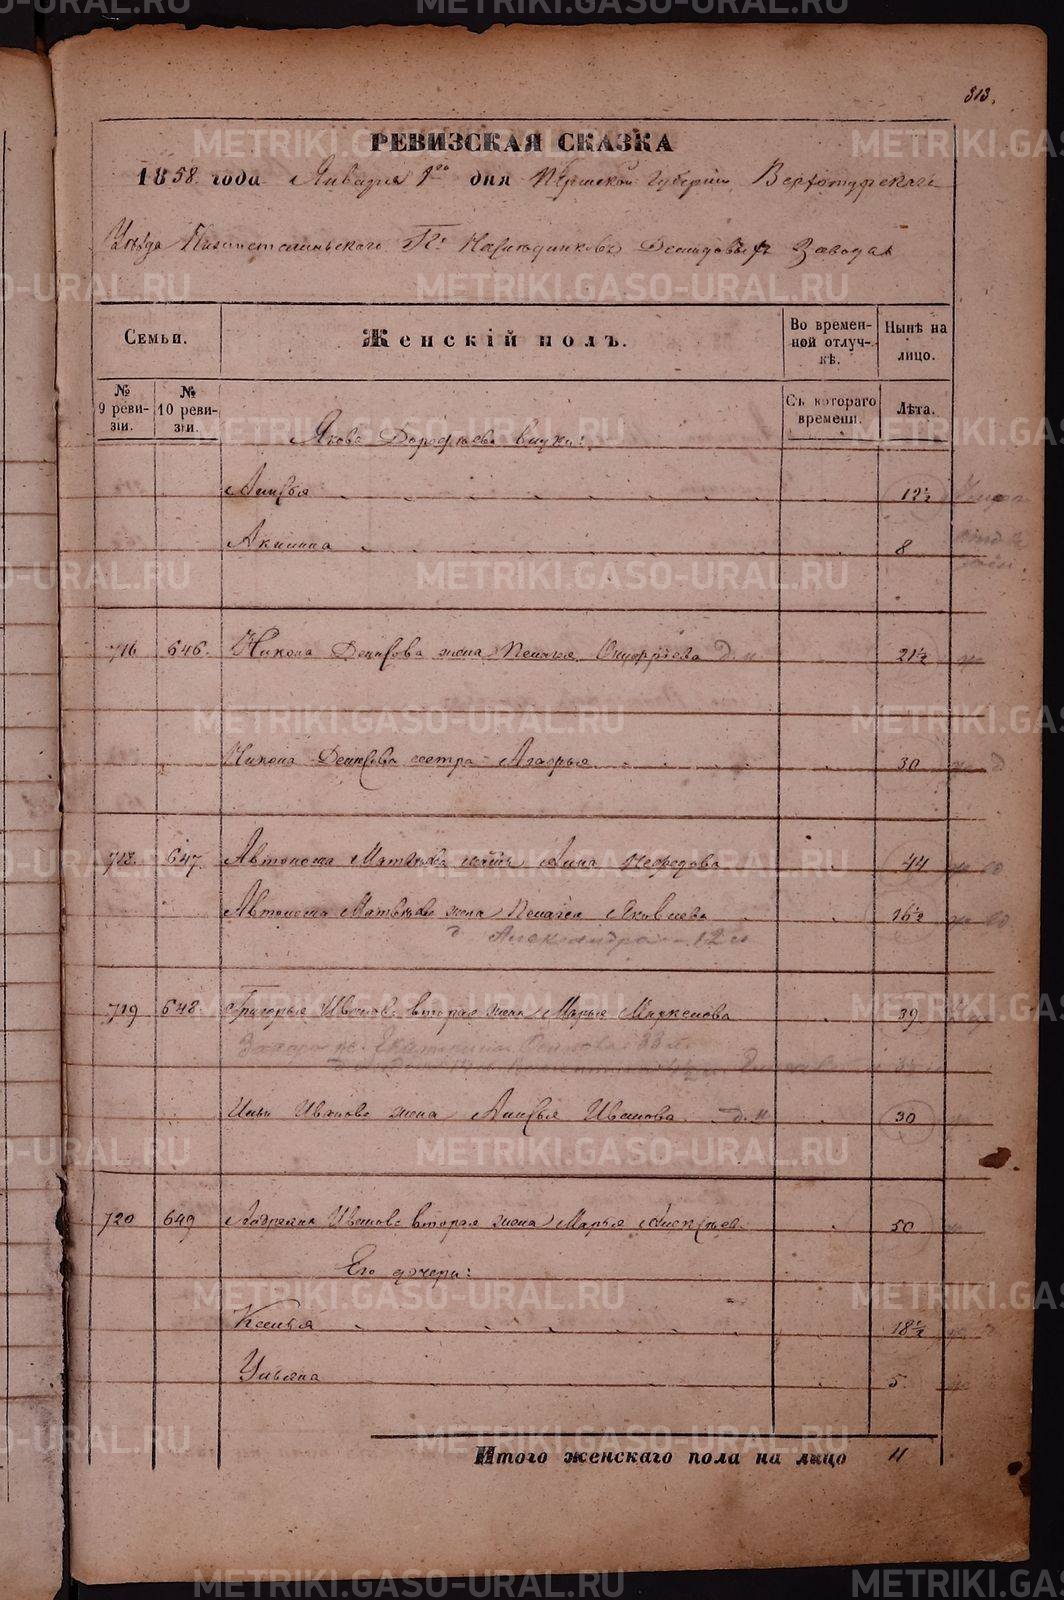 313.
РЕВИЗСКАЯ СКАЗКА
1858 года Января 1го дня Пермской Губернии Верхотурскаго
Уѣзда Гг. Наслѣдниковъ Демидовыхъ Завода
СЕМЬИ. ЖЕНСКІЙ ПОЛЪ. Во временной отлучкѣ. НЫНѢ НА ЛИЦО.
№ 9 ревизіи. № 10 ревизіи. Съ котораго времени. Лѣта.
Якова Дорофѣева внуки:
Анисья 12½
Акилина 8
716 646. Никона Денисова жена Пелагея 21½
Никона Денисова сестра Агафья 30
718. 647. Автонома Матвѣева мать Анна Нефедова 44
Автонома Матвѣева жена Пелагея Яковлева 16½
Александра 12
719 648. Григорья Иванова вторая жена Марья 39
Екатерина
Ильи Иванова жена Анисья Иванова 30
720 649 Андреяна Иванова вторая жена Марья Алексѣева 50
Его дочери:
Ксенья 18½
Ульяна 5
Итого женскаго пола на лицо 11
METRIKI.GASO-URAL.RU